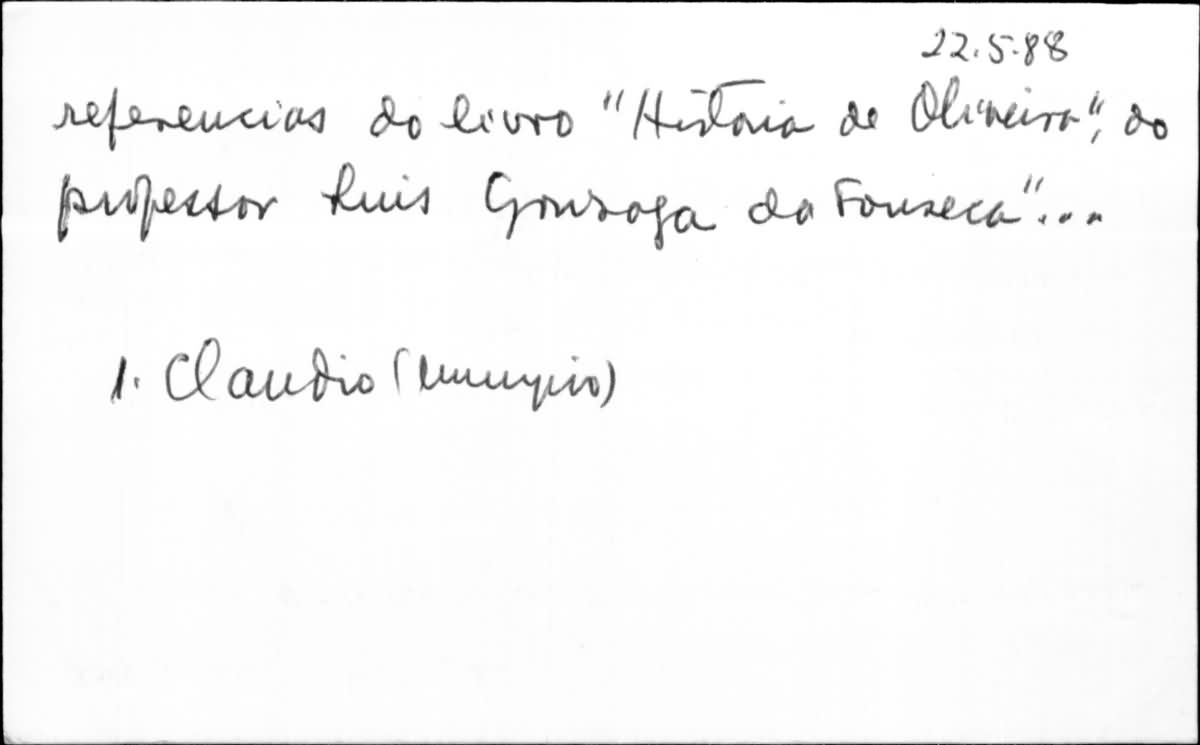 22.5.88
referencias do livro "História de Oliveira", do
professor Luis Gonzaga da Fonseca"...
1. Claudio (Município)